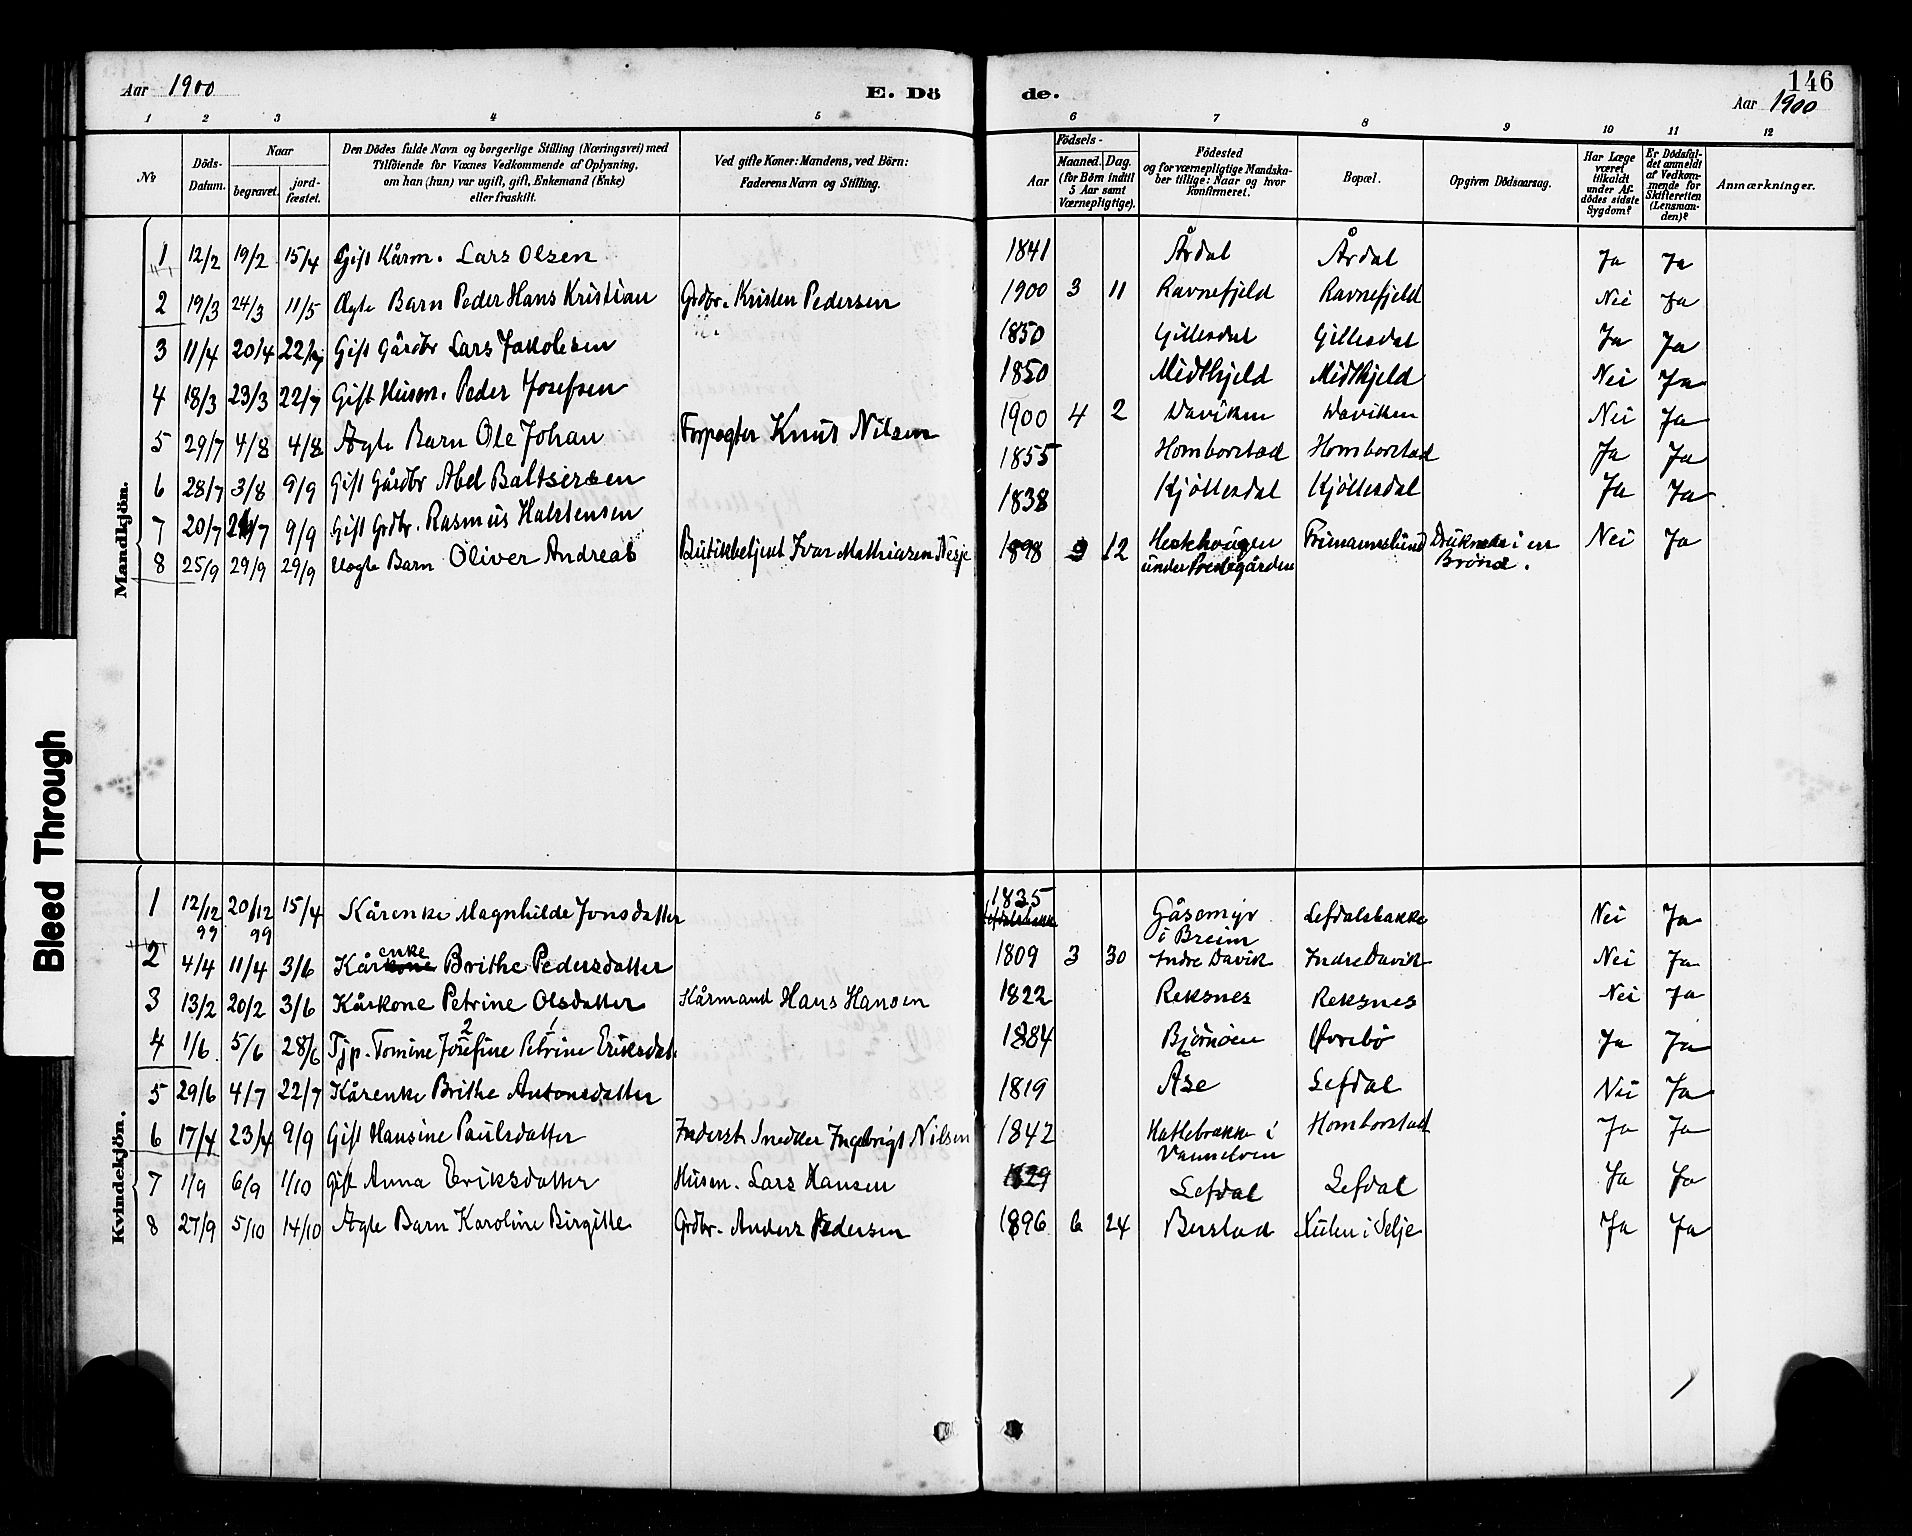 146
Aar 1900 E. Dö de. Aar 1900
1 2 3 4 5 6 7 8 9 10 11 12
No
Döds-Datum.
Naar
begravet.
jord-fæstet.
Den Dödes fulde Navn og borgerlige Stilling (Næringsvei) med
Tilföiende for Vaxnes Vedkommende af Oplysning,
om han (hun) var ugift, gift, Enkemand (Enke)
eller fraskilt.
Ved gifte Koner: Mandens, ved Börn:
Faderens Navn og Stilling.
Födsels-
Aar
Maaned. Dag.
(for Börn indtil
5 Aar samt
Værnepligtige).
Födested
og for værnepligtige Mandska-
ber tillige: Naar og hvor
konfirmeret.
Bopæl.
Opgiven Dödsaarsag.
Har Læge
været
tilkaldt
under Af-
dödes sidste
Sygdom?
Er Dödsfal-
det anmeldt
af Vedkom-
mende for
Skifteretten
(Lensman-
den)?
Anmærkninger.
Mandkjön.
1 12/2 19/2 15/4 Gift Kårm. Lars Olsen 1841 Årdal Årdal Ja Ja
2 19/3 24/3 11/5 Ægte Barn Peder Hans Kristian Grdbr. Kristen Pedersen 1900 3 11 Ravnefjeld Ravnefjeld Nei Ja
3 11/4 20/4 22/7 Gift Gårdbr Lars Jakobsen 1850 Gillesdal Gillesdal Ja Ja
4 18/3 23/3 22/7 Gift Husm. Peder Josefsen 1850 Midthjeld Midthjeld Nei Ja
5 29/7 4/8 4/8 Ægte Barn Ole Johan Forpagter Knut Nilsen 1900 4 2 Daviken Daviken Nei Ja
6 28/7 3/8 9/9 Gift Gårdbr Abel Baltsersen 1855 Homborstad Homborstad Ja Ja
7 20/7 /7 9/9 Gift Grdbr. Rasmus Halstensen 1838 Kjöllesdal Kjöllesdal Ja Ja
8 25/9 29/9 29/9 Uægte Barn Oliver Andreas Butikbetjent Ivar Mathiasen Nesje 1898 9 12 Hekkhougen Frimannslund Druknede i en Nei Ja
under Prestegården Brönd.
Kvindekjön.
1 12/12 20/12 15/4 Kårenke Magnhilde Jonsdatter 1825 Gåsemyr Lefdalsbakke Nei Ja
99 99 Lefdalsbakke i Breim
2 4/4 11/4 3/6 Kårkone enke Brithe Pedersdatter 1809 3 30 Indre Davik Indre Davik Nei Ja
3 13/2 20/2 3/6 Kårkone Petrine Olsdatter Kårmand Hans Hansen 1822 Reksnes Reksnes Nei Ja
2 1
4 1/6 5/6 28/6 Tjp. Tomine Josefine Petrine Eriksdat. 1884 Bjørnøen Øvrebö Ja Ja
5 29/6 4/7 22/7 Kårenke Brithe Antonsdatter 1819 Åse Lefdal Nei Ja
6 17/4 23/4 9/9 Gift Hansine Paulsdatter Inderst Snedker Ingebrigt Nilsen 1842 Katlebrekke i Homborstad Ja Ja
Vannelven
7 1/9 6/9 1/10 gift Anna Eriksdatter Husm. Lars Hansen 1829 Lefdal Lefdal Ja Ja
8 27/9 5/10 14/10 Ægte Barn Karoline Birgitte Grdbr. Anders Pedersen 1896 6 24 Berstad i Selje Ja Ja
Bleed Through